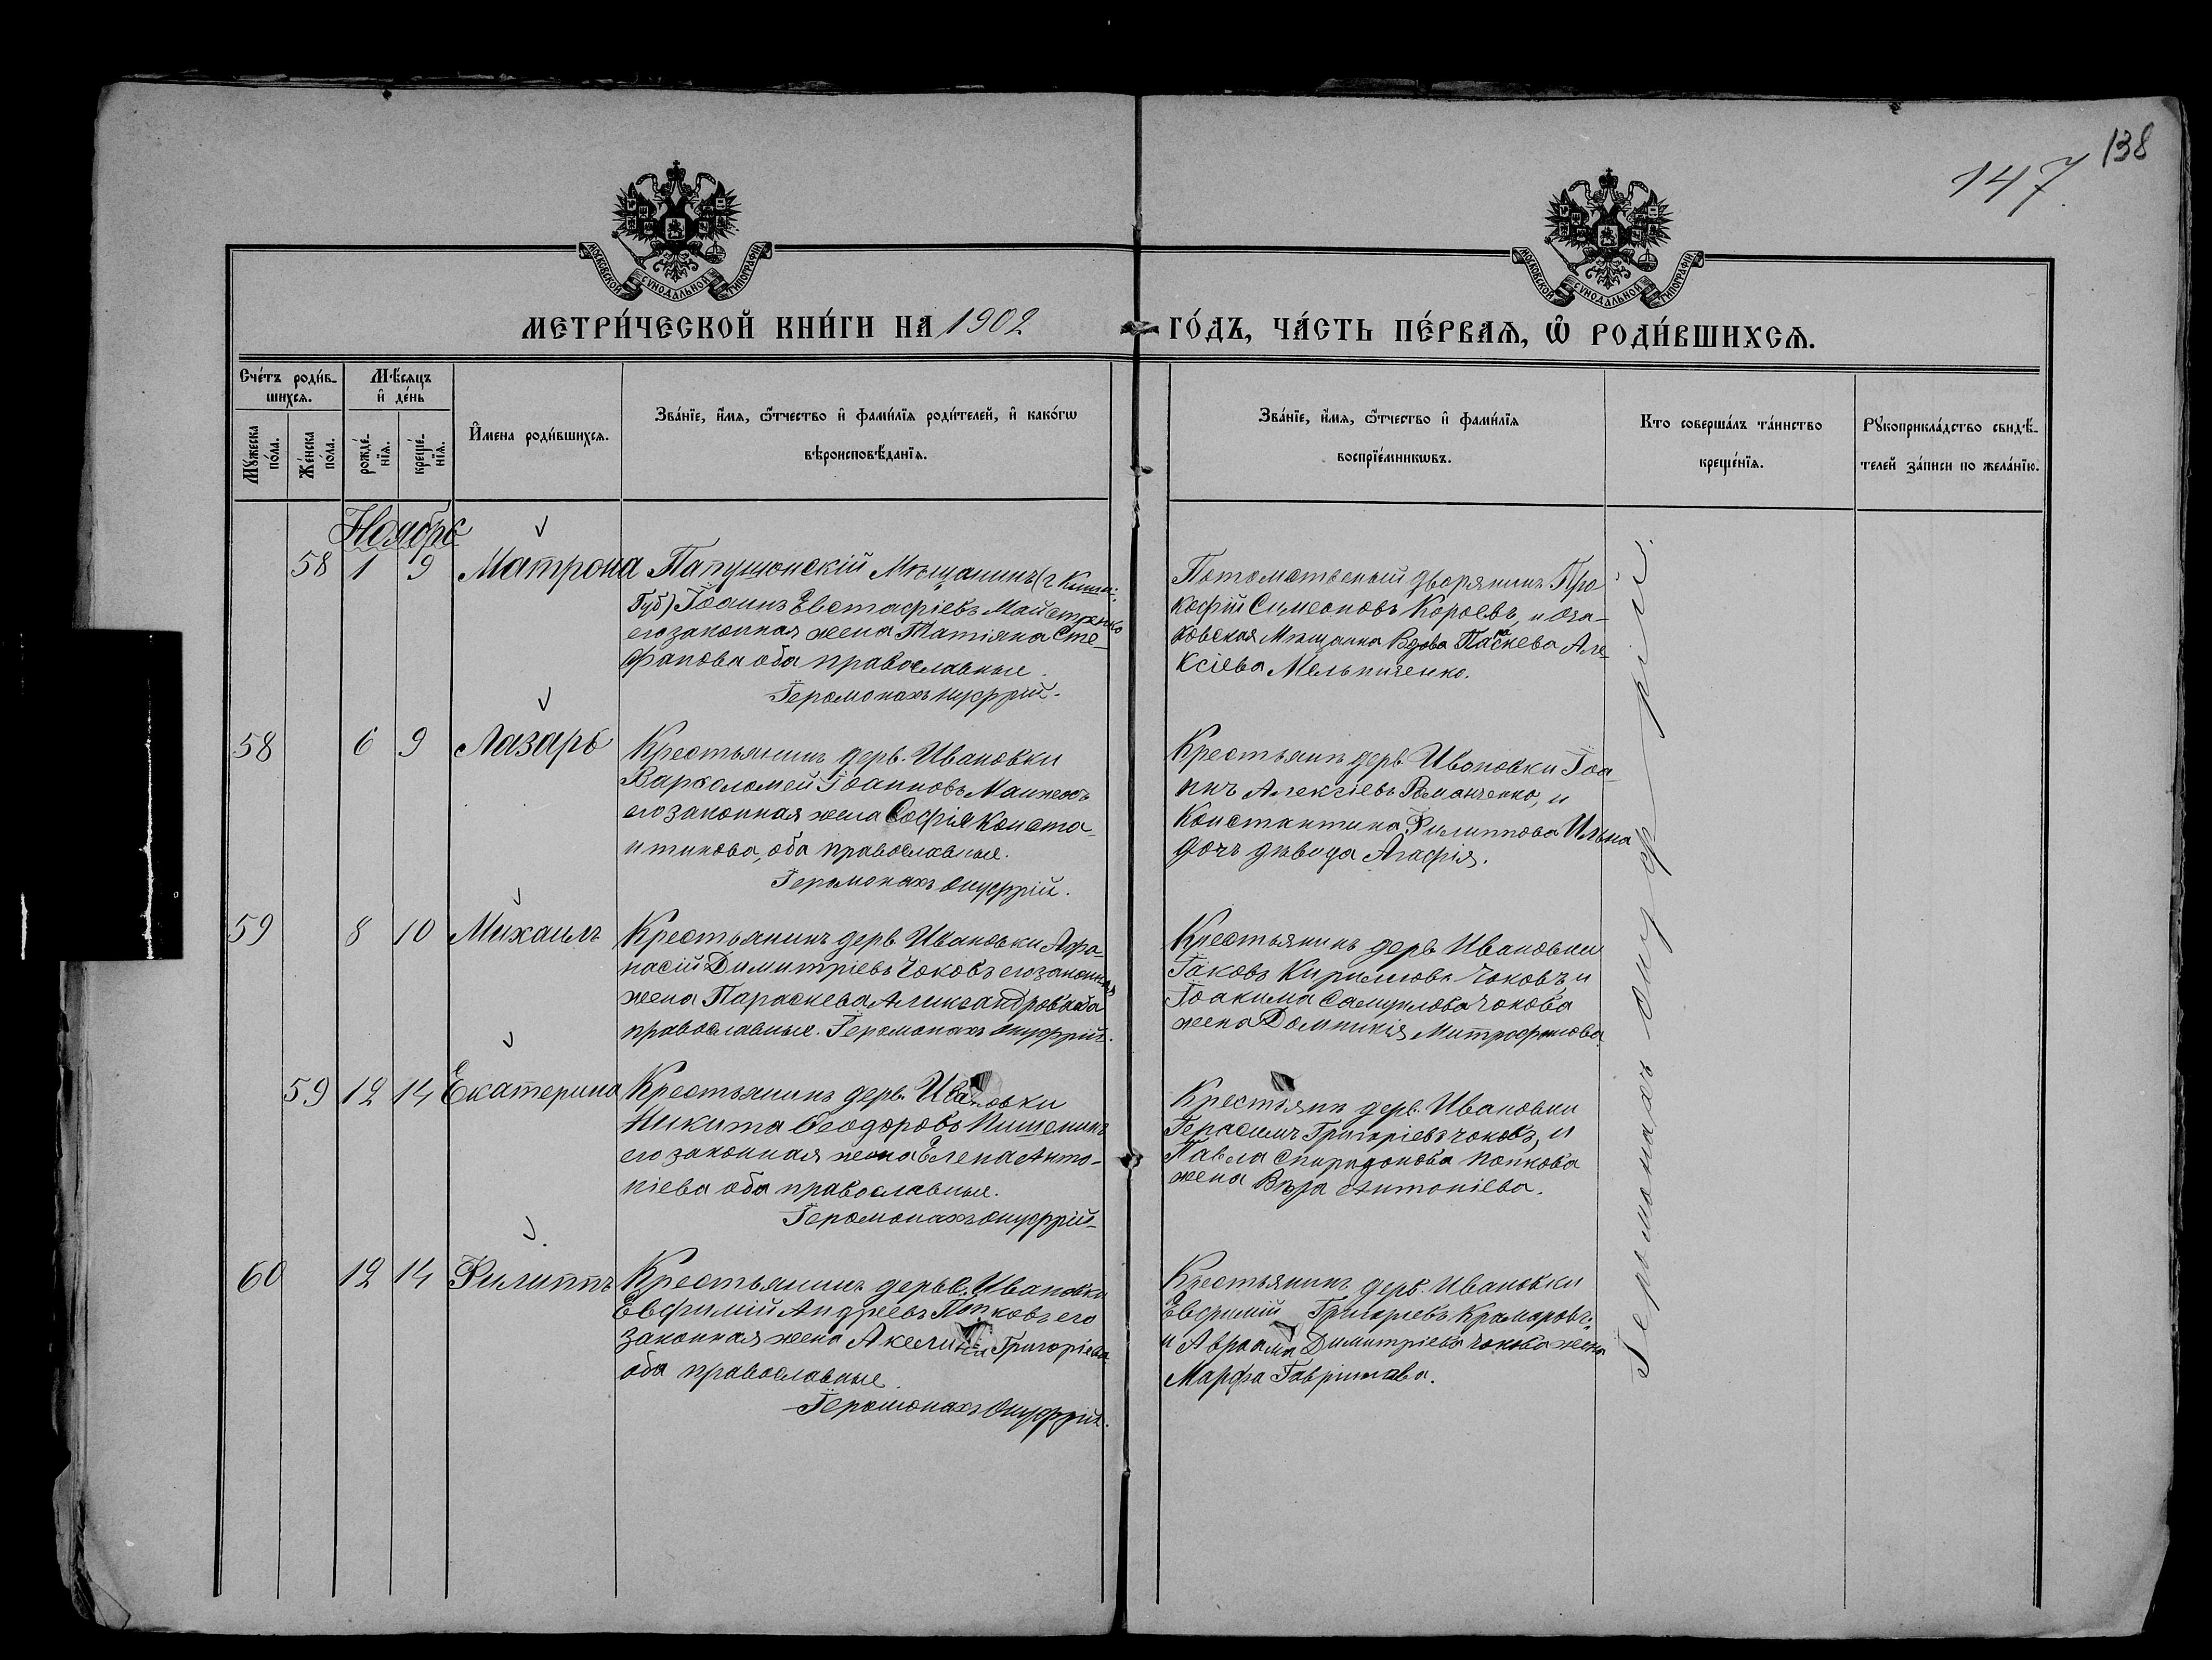 138
147
МОСКОВСКОЙ СѴНОДАЛЬНОЙ ТИПОГРАФІИ
МОСКОВСКОЙ СѴНОДАЛЬНОЙ ТИПОГРАФІИ
МЕТРИ́ЧЕСКОЙ КНИ́ГИ НА 1902 ГО́ДЪ, ЧА́СТЬ ПЕ́РВАѦ, Ѡ҆ РОДИ́ВШИХСѦ.
Сче́тъ роди́в-
шихсѧ.
Мѣ́сѧцъ
и҆ де́нь
Мꙋ́жеска по́ла.
Же́нска по́ла.
рожде́-
нїѧ.
креще́-
нїѧ.
И҆мена роди́вшихсѧ.
Зва́нїе, и҆́мѧ, ѻ҆́тчество и҆ фами́лїѧ роди́телей, и҆ како́гѡ
вѣроисповѣ́данїѧ.
Зва́нїе, и҆́мѧ, ѻ҆́тчество и҆ фами́лїѧ
воспрїе́мникѡвъ.
Кто соверша́лъ та́инство
креще́нїѧ.
Рꙋкоприкла́дство свидѣ́-
телей за́писи по жела́нїю.
Ноябрь
58 1 9 Матрона
Мѣщанинъ
Губ) Іоаннъ Евстафіевъ Майстренко
его законная жена Татіяна Сте-
фанова оба православные.
Іеромонахъ Онуфрій.
Потомственный дворянинъ Про
кофій Симеоновъ Короевъ, и Оча-
ковская Мѣщанка Вдова Параскева Але-
ксіева Мельниченко.
58 6 9 Лазарь
Крестьянинъ дерв. Ивановки
Варфоломей Іоанновъ
его законная жена Софія Конста-
нтинова, оба православные.
Іеромонахъ Онуфрій.
Крестьянинъ дерв. Ивановки Іоа-
ннъ Алексіевъ Романченко, и
Константина Филиппова Ильина
дочь дѣвица Агафія.
59 8 10 Михаилъ
Крестьянинъ дерв. Ивановки Афа-
насій Димитріевъ Чоковъ его законная
жена Параскева Александрова оба
православные. Іеромонахъ Онуфрій.
Крестьянинъ дерв. Ивановки
Іаковъ Кирилловъ Чоковъ, и
Іоакима Самуилова Чокова
жена Домникія Митрофанова.
59 12 14 Екатерина
Крестьянинъ дерв. Ивановки
Никита Ѳеодоровъ
его законная жена Елена Анто-
ніева оба православные.
Іеромонахъ Онуфрій
Крестьянинъ дерв. Ивановки
Герасимъ Григоріевъ Чоковъ, и
Павла Спиридонова Попкова
жена Вѣра Антоніева.
60 12 14 Филиппъ
Крестьянинъ дерев. Ивановки
Евфимій Андреевъ Попковъ его
законная жена Григоріева
оба православные.
Іеромонахъ Онуфрій.
Крестьянинъ дерв. Ивановки
Евфимій Григоріевъ
и Авраама Димитріева Чокова жена
Марфа Гавриилова.
Іеромонахъ Онуфрій.